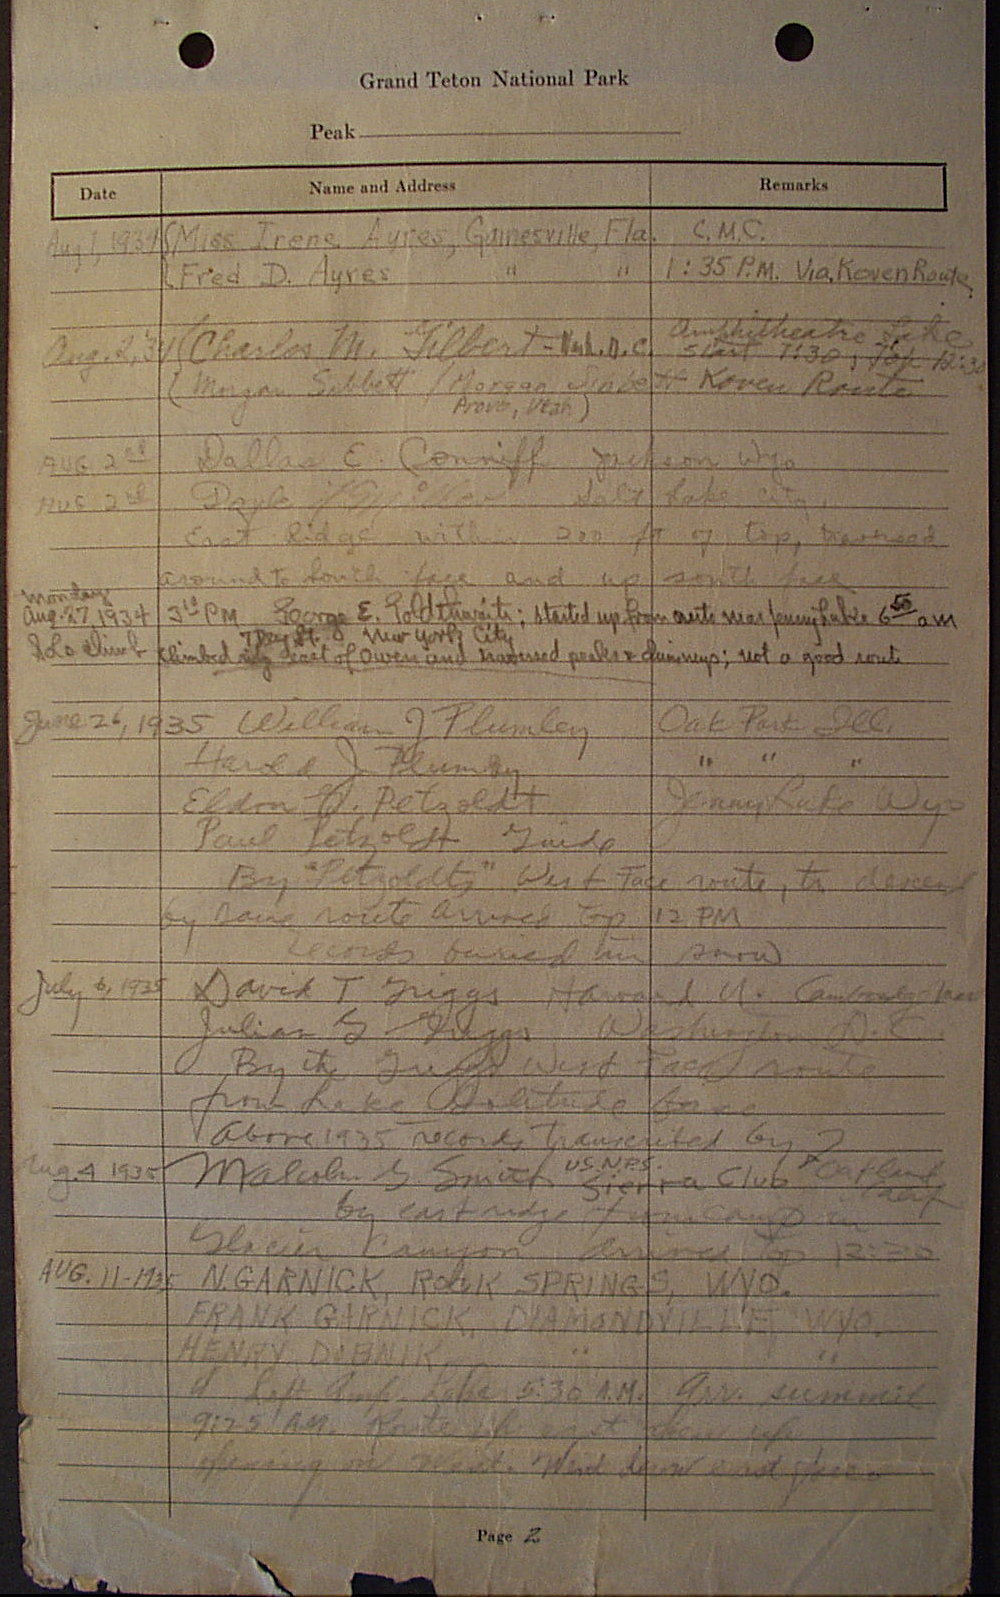 Grand Teton National Park
Peak
Date Name and Address Remarks
Aug 1, 1934 (Miss Irene Ayres, Gainesville, Fla. C.M.C.
(Fred D. Ayres " " 1:35 P.M. Via Koven Route
Amphitheatre Lake
Aug. 2, '34 (Charles M. Gilbert - Wash. D.C. start 7:30; Top 12:30
(Morgan Sibbett (Morgan Sibbett Koven Route
Provo, Utah)
AUG 2nd Dallas E. Conniff Jackson Wyo
AUG 2nd Doyle Salt Lake City,
East Ridge within 200 ft of top, traversed
around to South face and up south face
Monday
Aug. 27, 1934 3 PM George E. Goldthwaite; started up from auto near Jenny Lake 6 50 a m
Solo climb 7 Dey St. New York City
climbed ridge east of Owen and traversed peaks & chimneys; not a good route
June 26, 1935 William J Plumley Oak Park Ill.
Harold J. Plumley " " "
Eldon Petzoldt Jenny Lake Wyo
Paul Petzoldt Guide
By "Petzoldts" West Face route, to descend
by same route arrived top 12 PM
records buried in snow
July 6, 1935 David T Griggs Harvard U. Cambridge Mass
Julian G Griggs Washington D.C.
By the Griggs West Face route
from Lake Solitude
Above 1935 records transcribed by
Aug. 4 1935 Malcolm G Smith U.S.N.P.S. Sierra Club Oakland Calif
by east ridge from camp in
Glacier Canyon arrived top 12:20
AUG. 11-1935 N. GARNICK, ROCK SPRINGS, WYO.
FRANK GARNICK, DIAMONDVILLE, WYO.
HENRY DOBNIK, " "
Left Amp. Lake 5:30 A.M. Arr. summit
9:25 AM. Route
on West. Went down east face
Page 2